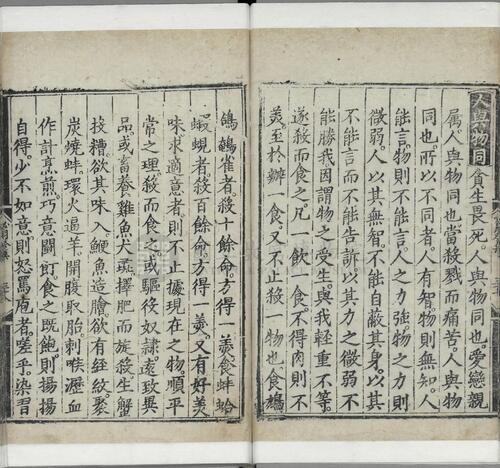 人與物同
貪生畏死。人與物同也。愛戀親
屬。人與物同也。當殺戮而痛苦。人與物
同也。所以不同者。人有智。物則無知。人
能言。物則不能言。人之力強。物之力則
微弱。人以其無智。不能自蔽其身。以其
不能言。而不能告訴。以其力之微弱。不
能勝我。因謂物之受生。與我輕重不等。
遂殺而食之。凡一飲一食。不得肉則不
美。至於辦一食。又不止殺一物也。食鳩
鴿鵪雀者。殺十餘命。方得一羹。食蚌蛤
蝦蜆者。殺百餘命。方得一羹。又有好美
味。求適意者。則不止據現在之物。順平
常之理。殺而食之。或驅役奴隸。遠致異
品。或畜養雞魚犬彘。擇肥而旋殺。生蟹
投糟。欲其味入。鱖魚造膾。欲有經紋。聚
炭燒蚌。環火逼羊。開腹取胎。刺喉瀝血。
作計烹煎。巧意鬬飣。食之既飽。則揚揚
自得。少不如意。則怒罵庖者。嗟乎。染習